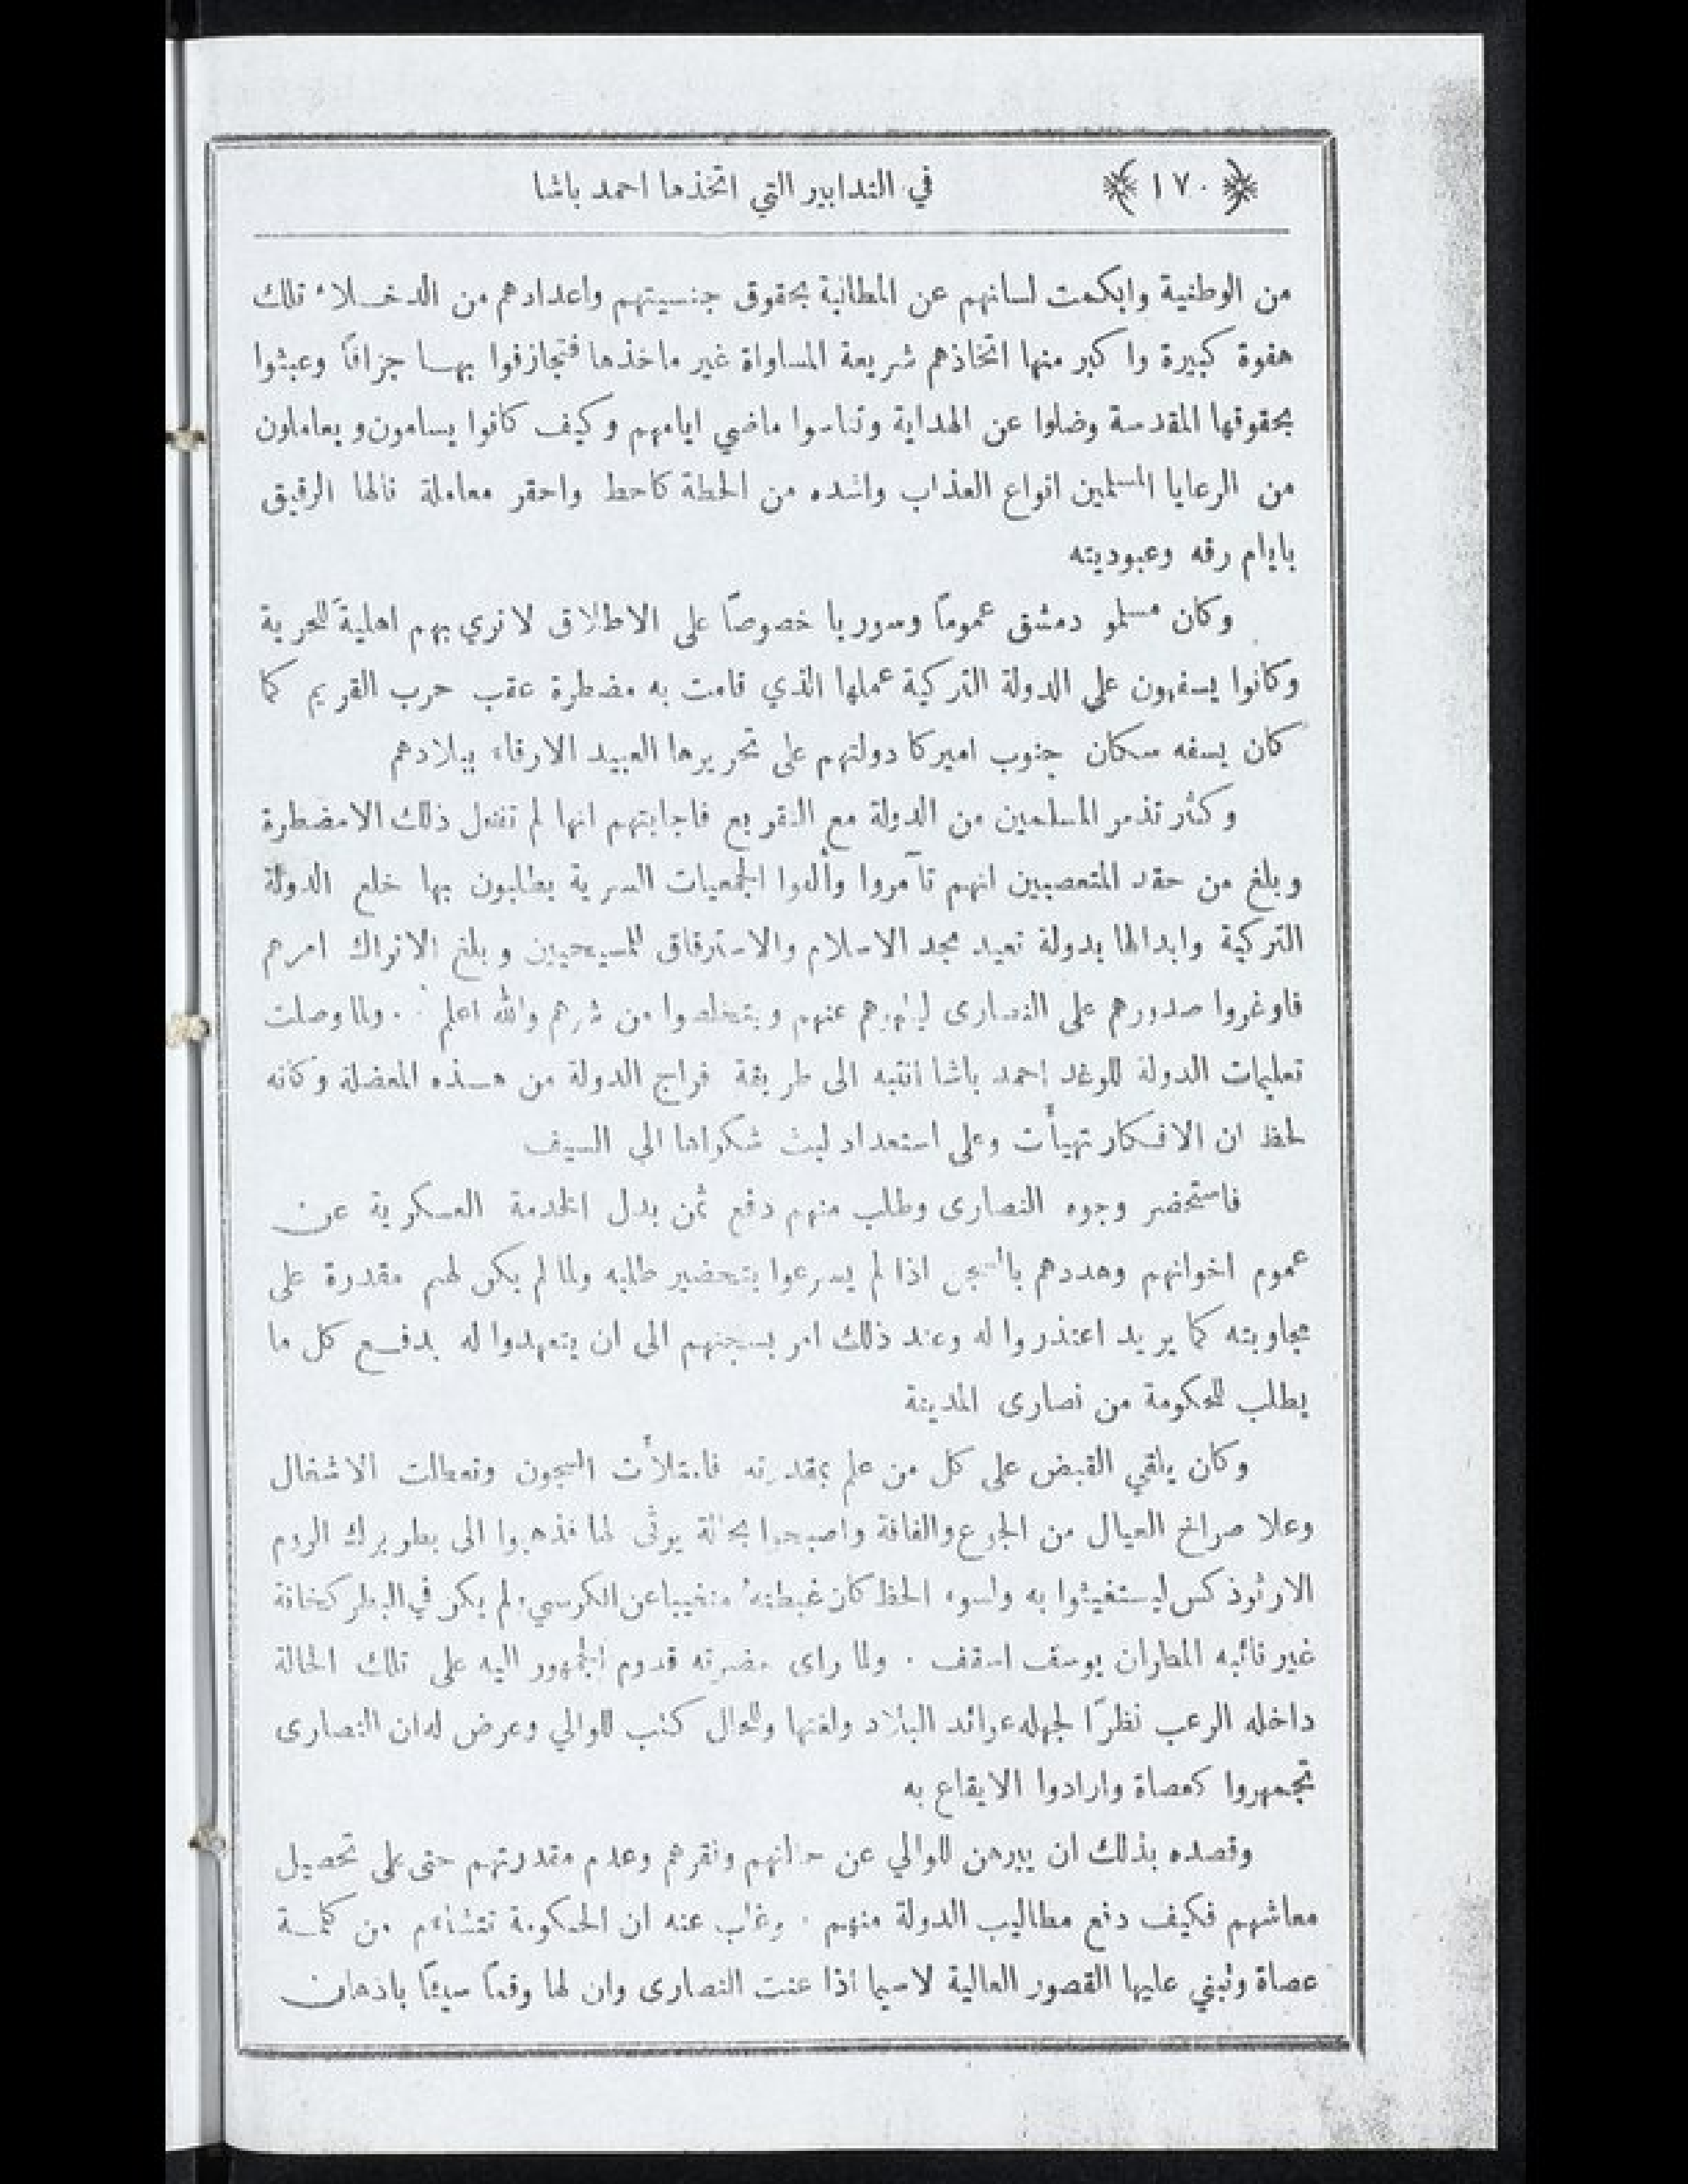 ﴿١٧٠﴾ في التدابير التي اتخذها احمد باشا
من الوطنية وابكمت لسانهم عن المطالبة بحقوق جنسيتهم واعدادهم من الدخلاء تلك
هفوة كبيرة واكبر منها اتخاذهم شريعة المساواة غير ماخذها فتجازفوا بها جزافاً وعبثوا
بحقوقها المقدسة وضلوا عن الهداية وتناسوا ماضي ايامهم وكيف كانوا يسامون ويعاملون
من الرعايا المسلمين انواع العذاب واشده من الحطة كاحط واحقر معاملة نالها الرقيق
بايام رقه وعبوديته
وكان مسلمو دمشق عموماً وسوريا خصوصاً على الاطلاق لا نرى بهم اهلية للحرية
وكانوا يسفهون على الدولة التركية عملها الذي قامت به مضطرة عقب حرب القريم كما
كان يسفه سكان جنوب اميركا دولتهم على تحريرها العبيد الارقاء ببلادهم
وكثر تذمر المسلمين من الدولة مع التقريع فاجابتهم انها لم تفعل ذلك الا مضطرة
وبلغ من حقد المتعصبين انهم تآمروا وألفوا الجمعيات السرية يطلبون بها خلع الدولة
التركية وابدالها بدولة تعيد مجد الاسلام والاسترقاق للمسيحيين وبلغ الاتراك امرهم
فاوغروا صدورهم على النصارى ليلهوهم عنهم ويتخلصوا من شرهم والله اعلم . ولما وصلت
تعليمات الدولة للوغد احمد باشا انتبه الى طريقة فراج الدولة من هذه المعضلة وكانه
لحظ ان الافكار تهيأت وعلى استعداد لبث شكواها الى السيف
فاستحضر وجوه النصارى وطلب منهم دفع ثمن بدل الخدمة العسكرية عن
عموم اخوانهم وهددهم بالسجن اذا لم يسرعوا بتحضير طلبه ولما لم يكن لهم مقدرة على
مجاوبته كما يريد اعتذروا له وعند ذلك امر بسجنهم الى ان يتعهدوا له بدفع كل ما
يطلب للحكومة من نصارى المدينة
وكان يلقي القبض على كل من علم بمقدرته فامتلأت السجون وتعطلت الاشغال
وعلا صراخ العيال من الجوع والفاقة واصبحوا بحالة يرثى لها فذهبوا الى بطريرك الروم
الارثوذكس ليستغيثوا به ولسوء الحظ كان غبطته متغيبا عن الكرسي ولم يكن في البطركخانة
غير نائبه المطران يوسف اسقف . ولما راى حضرته قدوم الجمهور اليه على تلك الحالة
داخله الرعب نظراً لجهله عوائد البلاد ولغتها وللحال كتب للوالي وعرض له ان النصارى
تجمهروا كعصاة وارادوا الايقاع به
وقصده بذلك ان يبرهن للوالي عن حالتهم وفقرهم وعدم مقدرتهم حتى على تحصيل
معاشهم فكيف دفع مطاليب الدولة منهم . وغاب عنه ان الحكومة تتشاءم من كلمة
عصاة وتبني عليها القصور العالية لاسيما اذا عنت النصارى وان لها وقعاً سيئاً باذهان